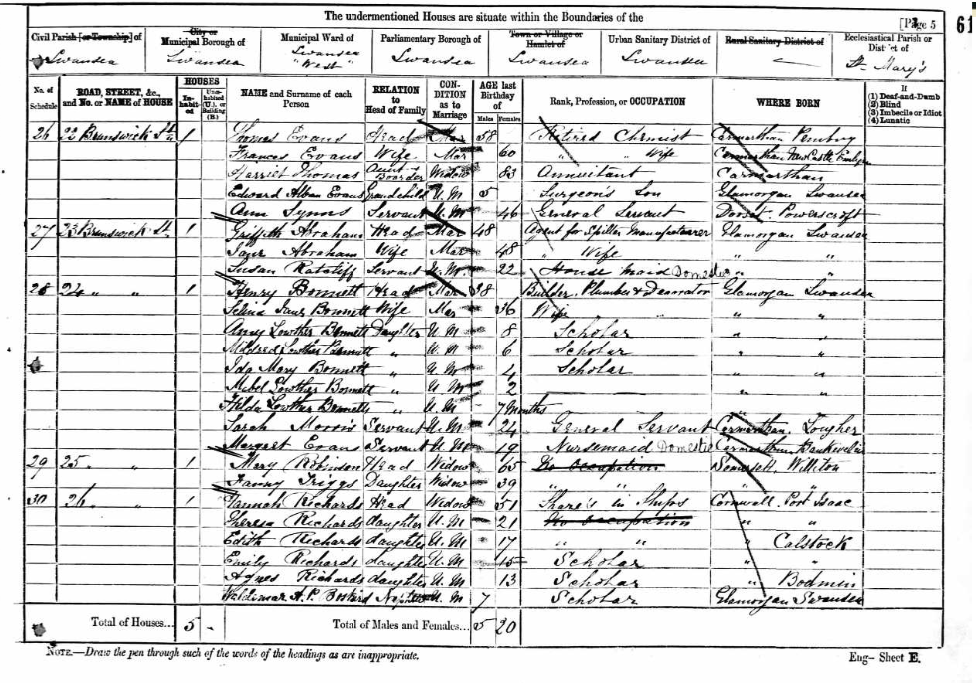 The undermentioned Houses are situate within the Boundaries of the
[Page 5
61
Civil Parish [or Township] of
Swansea
City or Municipal Borough of
Swansea
Municipal Ward of
Swansea "West"
Parliamentary Borough of
Swansea
Town or Village or Hamlet of
Swansea
Urban Sanitary District of
Swansea
Rural Sanitary District of
Ecclesiastical Parish or District of
St. Mary's
No. of Schedule
ROAD, STREET, &c., and No. or NAME of HOUSE
HOUSES
In-habit-ed
Un-inhabited (U.), or Building (B.)
NAME and Surname of each Person
RELATION to Head of Family
CON-DITION as to Marriage
AGE last Birthday of
Males
Females
Rank, Profession, or OCCUPATION
WHERE BORN
If (1) Deaf-and-Dumb (2) Blind (3) Imbecile or Idiot (4) Lunatic
26 22 Brunswick St 1 Thomas Evans Head Mar 58 Retired Chemist Carmarthen Pembrey
Frances Evans Wife Mar 60 " " Wife Carmarthen Newcastle Emlyn
Harriet Thomas Aunt Boarder Widow 83 Annuitant Carmarthen
Edward Alban Evans Grandchild U.M 5 Surgeon's Son Glamorgan Swansea
Ann Symns Servant U.M 46 General Servant Dorset
27 23 Brunswick St 1 Griffith Abraham Head Mar 48 Agent for Spelter Manufacturer Glamorgan Swansea
Jane Abraham Wife Mar 48 " Wife " "
Susan Ratcliff Servant U.M. 22 House maid Domestic " "
28 24 " " 1 Henry Bonnett Head Mar 38 Builder, Plumber & Decorator Glamorgan Swansea
Selina Jane Bonnett Wife Mar 36 Wife " "
Amy Lowther Bonnett Daughter U.M 8 Scholar " "
Mildred Lowther Bonnett " U.M 6 Scholar " "
Ida Mary Bonnett " U.M 4 Scholar " "
Mabel Lowther Bonnett " U.M 2 " "
Hilda Lowther Bonnett " U.M 7 Months " "
Sarah Morris Servant U.M 24 General Servant Carmarthen Lougher
Margaret Evans Servant U.M 19 Nursemaid Domestic Carmarthen
29 25 " " 1 Mary Robinson Head Widow 65 No occupation Somerset Williton
Fanny Triggs Daughter Widow 39 " " " "
30 26 " " 1 Hannah Richards Head Widow 51 Share's in Ships Cornwall Port Isaac
Theresa Richards daughter U.M 21 No occupation " "
Edith Richards daughter U.M 17 " " " Calstock
Emily Richards daughter U.M 15 Scholar " "
Agnes Richards daughter U.M 13 Scholar " Bodmin
Waldimar A.P. Nephew U.M 7 Scholar Glamorgan Swansea
Total of Houses... 5 -
Total of Males and Females... 5 20
NOTE.—Draw the pen through such of the words of the headings as are inappropriate.
Eng— Sheet E.